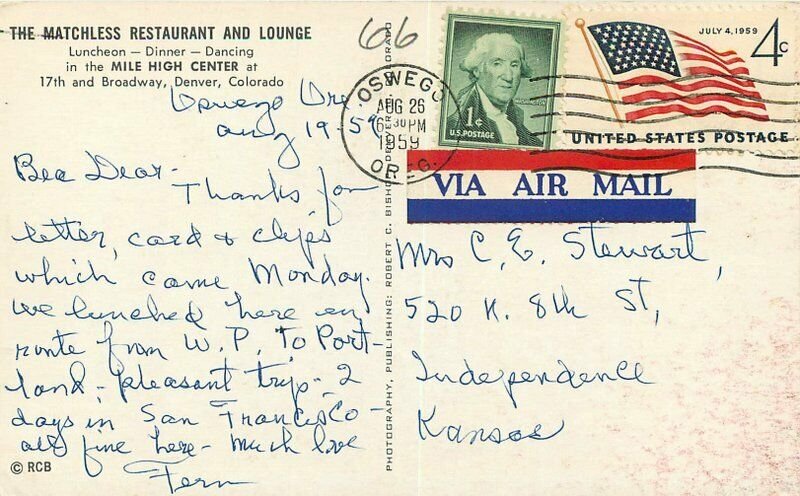 THE MATCHLESS RESTAURANT AND LOUNGE
Luncheon — Dinner — Dancing
in the MILE HIGH CENTER at
17th and Broadway, Denver, Colorado
66
Oswego Ore.
Aug 19-59
Bea Dear-
Thanks for
letter, card & clips
which came Monday.
we lunched here en
route from W.P. To Port-
land - pleasant trip - 2
days in San Francisco -
all fine here - much love
Fern
© RCB
PHOTOGRAPHY, PUBLISHING: ROBERT C. BISHOP, DENVER, COLORADO
OSWEGO
AUG 26
6 30 PM
1959
OREG.
WASHINGTON
1¢
U.S. POSTAGE
JULY 4, 1959
4c
UNITED STATES POSTAGE
VIA AIR MAIL
Mrs C. E. Stewart,
520 N. 8th St,
Independence
Kansas